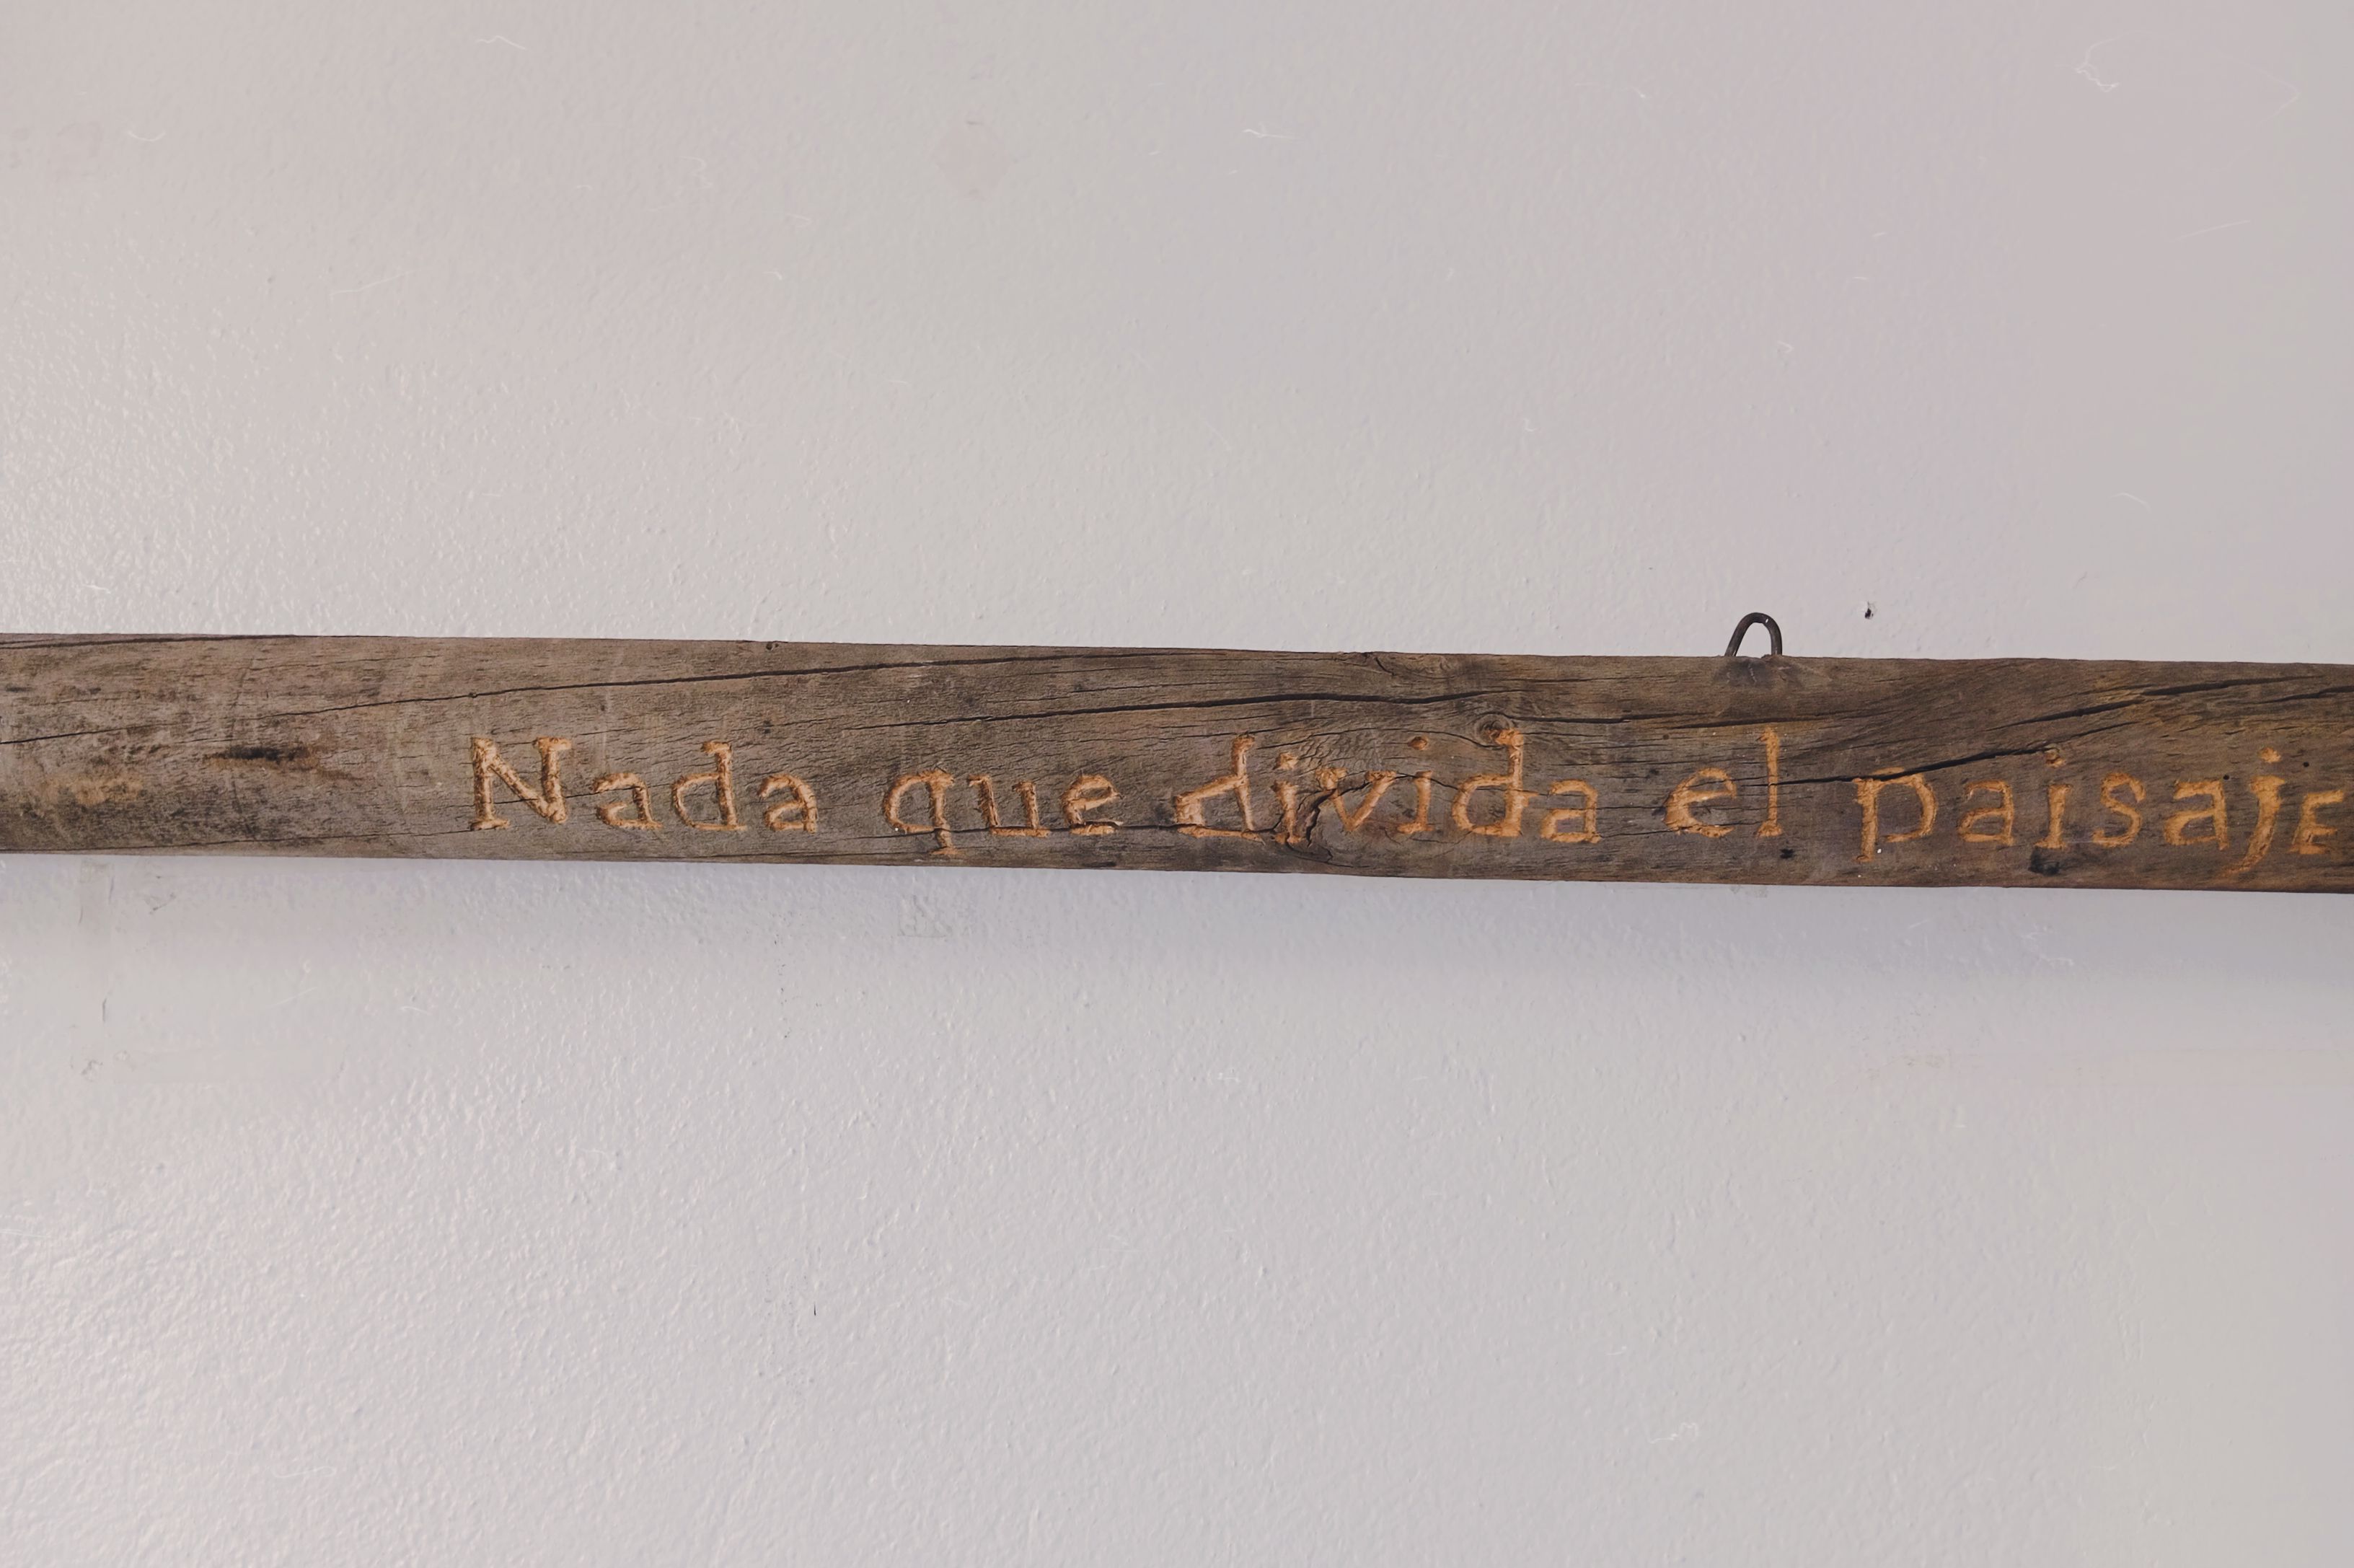 Nada que divida el paisaje